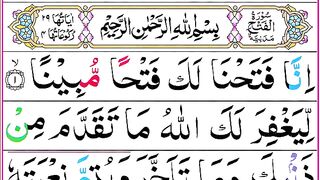 سُورَةُ الْفَتْحِ مَدَنِيَّةٌ
بِسْمِ اللهِ الرَّحْمٰنِ الرَّحِيْمِ
اٰيَاتُهَا ٢٩
رُكُوْعَاتُهَا ٤
اِنَّا فَتَحْنَا لَكَ فَتْحًا مُّبِيْنًا ۝١
لِّيَغْفِرَ لَكَ اللهُ مَا تَقَدَّمَ مِنْ
ذَنْۢبِكَ وَمَا تَاَخَّرَ وَيُتِمَّ نِعْمَتَهٗ